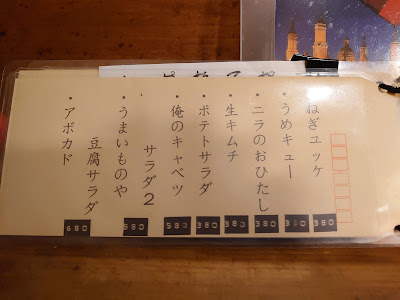 ねぎユッケ 380
・うめキュー 380
・ニラのおひたし 380
・生キムチ 380
・ポテトサラダ 380
・俺のキャベツ 580
・サラダ2
・うまいものや 580
豆腐サラダ
・アボカド 680